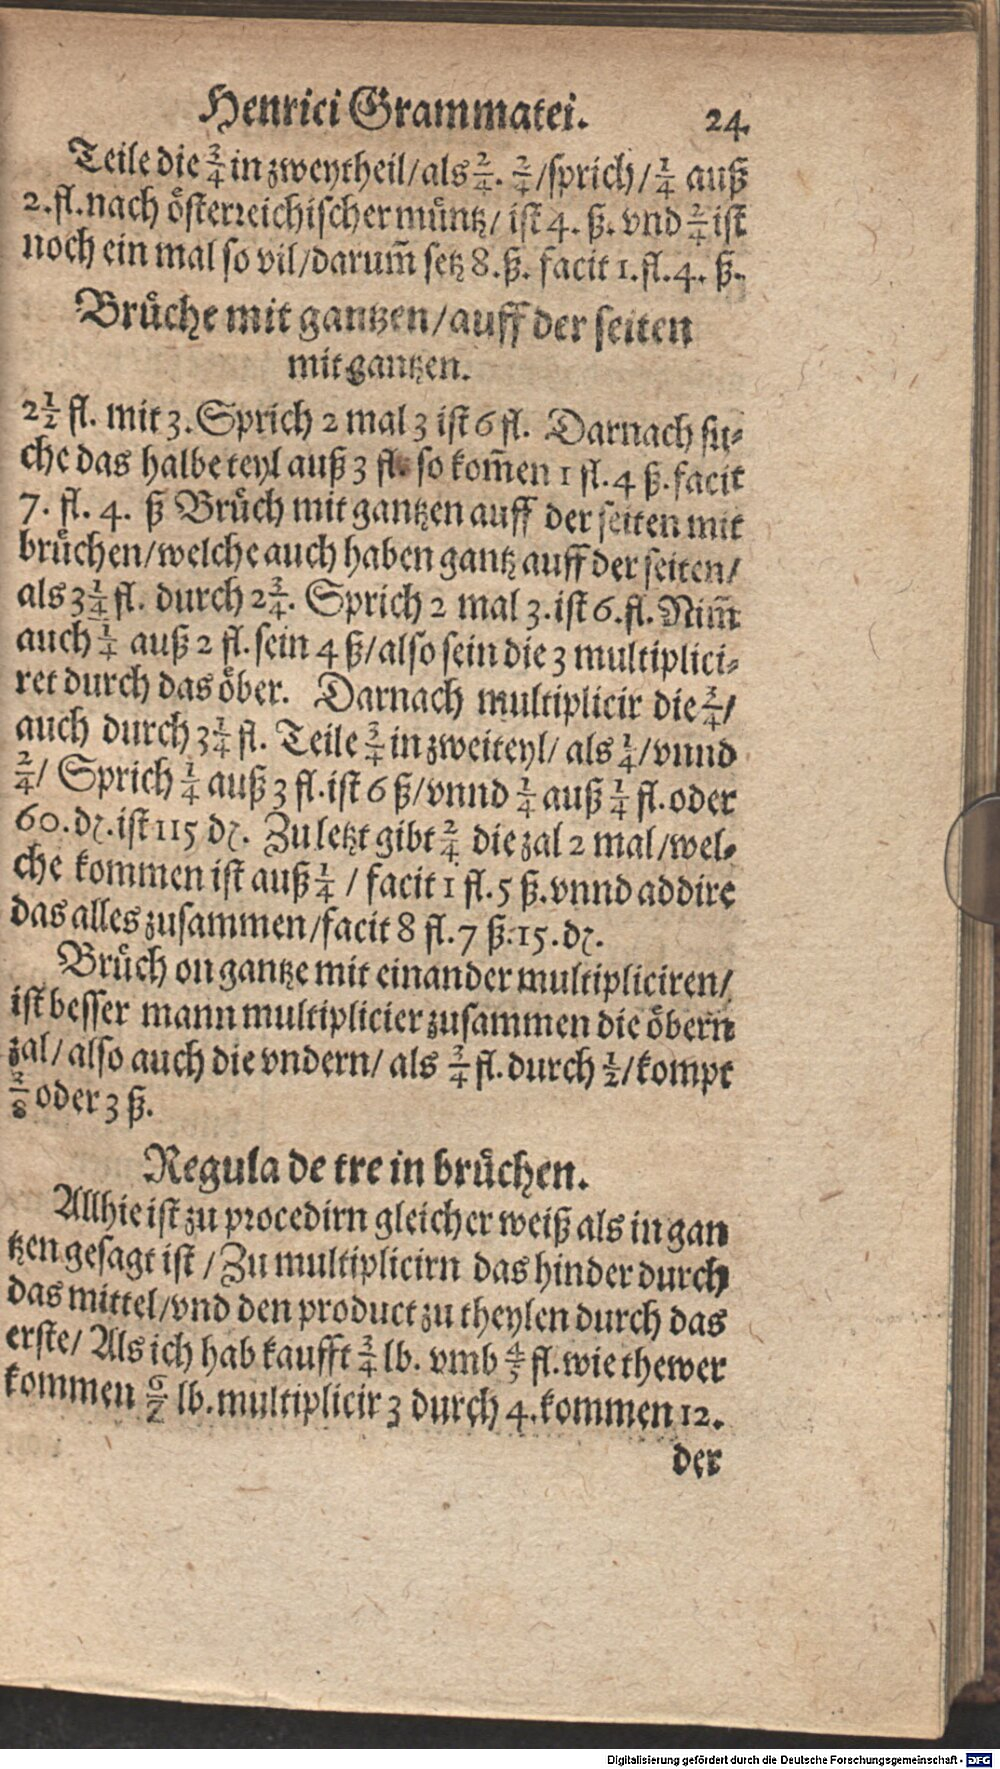 Henrici Grammatei. 24.
Teile die 3/4 in zweytheil/als 2/4. 2/4/sprich/ 1/4 auß
2.fl.nach österreichischer müntz/ ist 4. ß. vnd 2/4 ist
noch ein mal so vil/darum̃ setz 8.ß. facit 1.fl.4. ß.
Brüche mit gantzen/auff der seiten
mit gantzen.
2 1/2 fl. mit 3. Sprich 2 mal 3 ist 6 fl. Darnach su-
che das halbe teyl auß 3 fl. so kom̃en 1 fl.4 ß.facit
7. fl. 4. ß Brüch mit gantzen auff der seiten mit
brüchen/welche auch haben gantz auff der seiten/
als 3 1/4 fl. durch 2 3/4. Sprich 2 mal 3.ist 6.fl. Nim̃
auch 1/4 auß 2 fl. sein 4 ß/also sein die 3 multiplici-
ret durch das öber. Darnach multiplicir die 3/4/
auch durch 3 1/4 fl. Teile 3/4 in zweiteyl/ als 1/4/vnnd
2/4/ Sprich 1/4 auß 3 fl.ist 6 ß/vnnd 1/4 auß 1/4 fl.oder
60.dz.ist 115 dz. Zu letzt gibt 2/4 die zal 2 mal/wel-
che kommen ist auß 1/4 / facit 1 fl.5 ß.vnnd addire
das alles zusammen/facit 8 fl.7 ß.15.dz.
Brüch on gantze mit einander multipliciren/
ist besser mann multiplicier zusammen die öbern
zal/ also auch die vndern/ als 3/4 fl.durch 1/2/kompt
3/8 oder 3 ß.
Regula de tre in brüchen.
Allhie ist zu procedirn gleicher weiß als in gan
tzen gesagt ist / Zu multiplicirn das hinder durch
das mittel/vnd den product zu theylen durch das
erste/ Als ich hab kaufft 3/4 lb. vmb 4/5 fl.wie thewer
kommen 6/7 lb.multiplicir 3 durch 4.kommen 12.
der
Digitalisierung gefördert durch die Deutsche Forschungsgemeinschaft - DFG